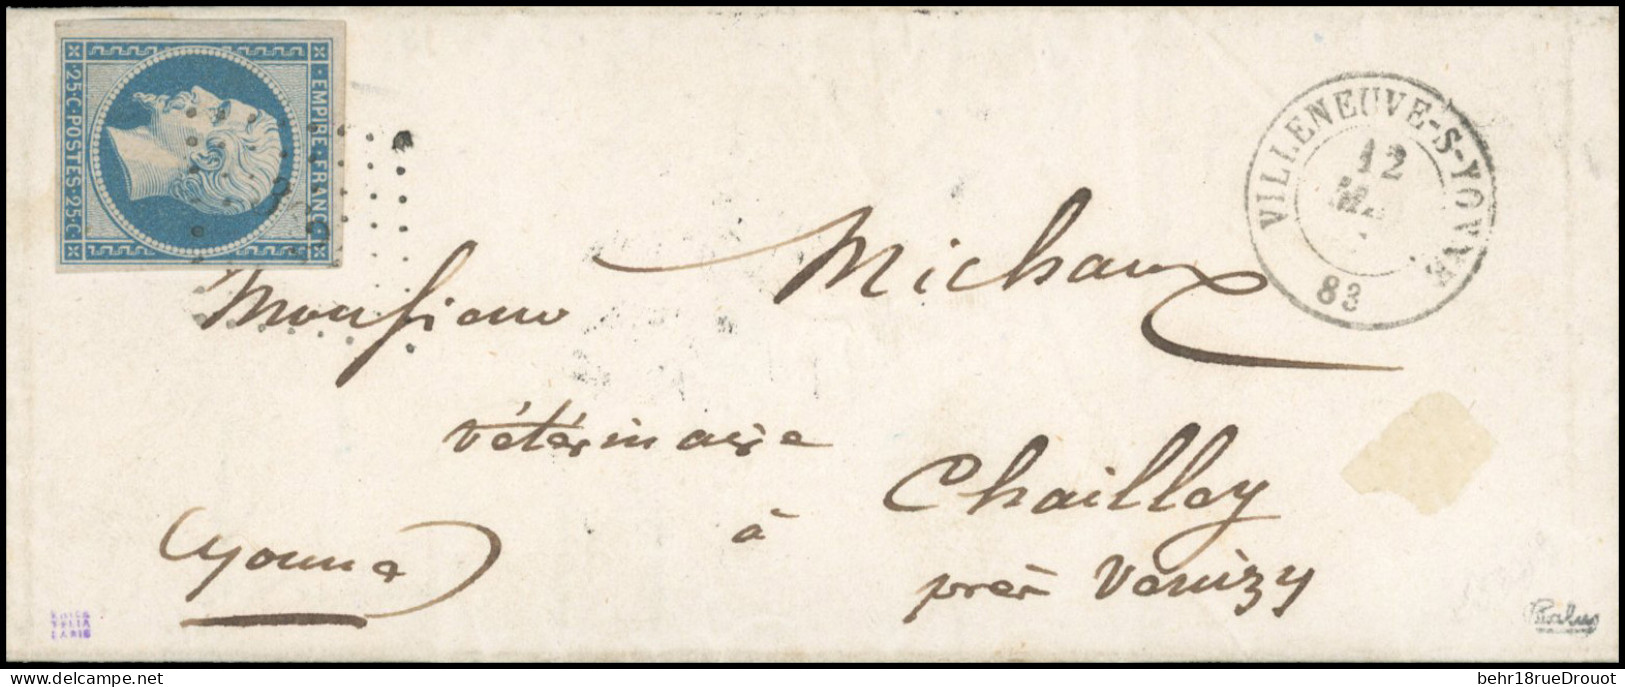 EMPIRE · FRANC ·
· 25 · C · POSTES · 25 · C ·
VILLENEUVE-S-YONNE
12
83
Monsieur Michaux
vétérinaire
à Chailley
près Venizy
(yonne)
behr18rueDrouot